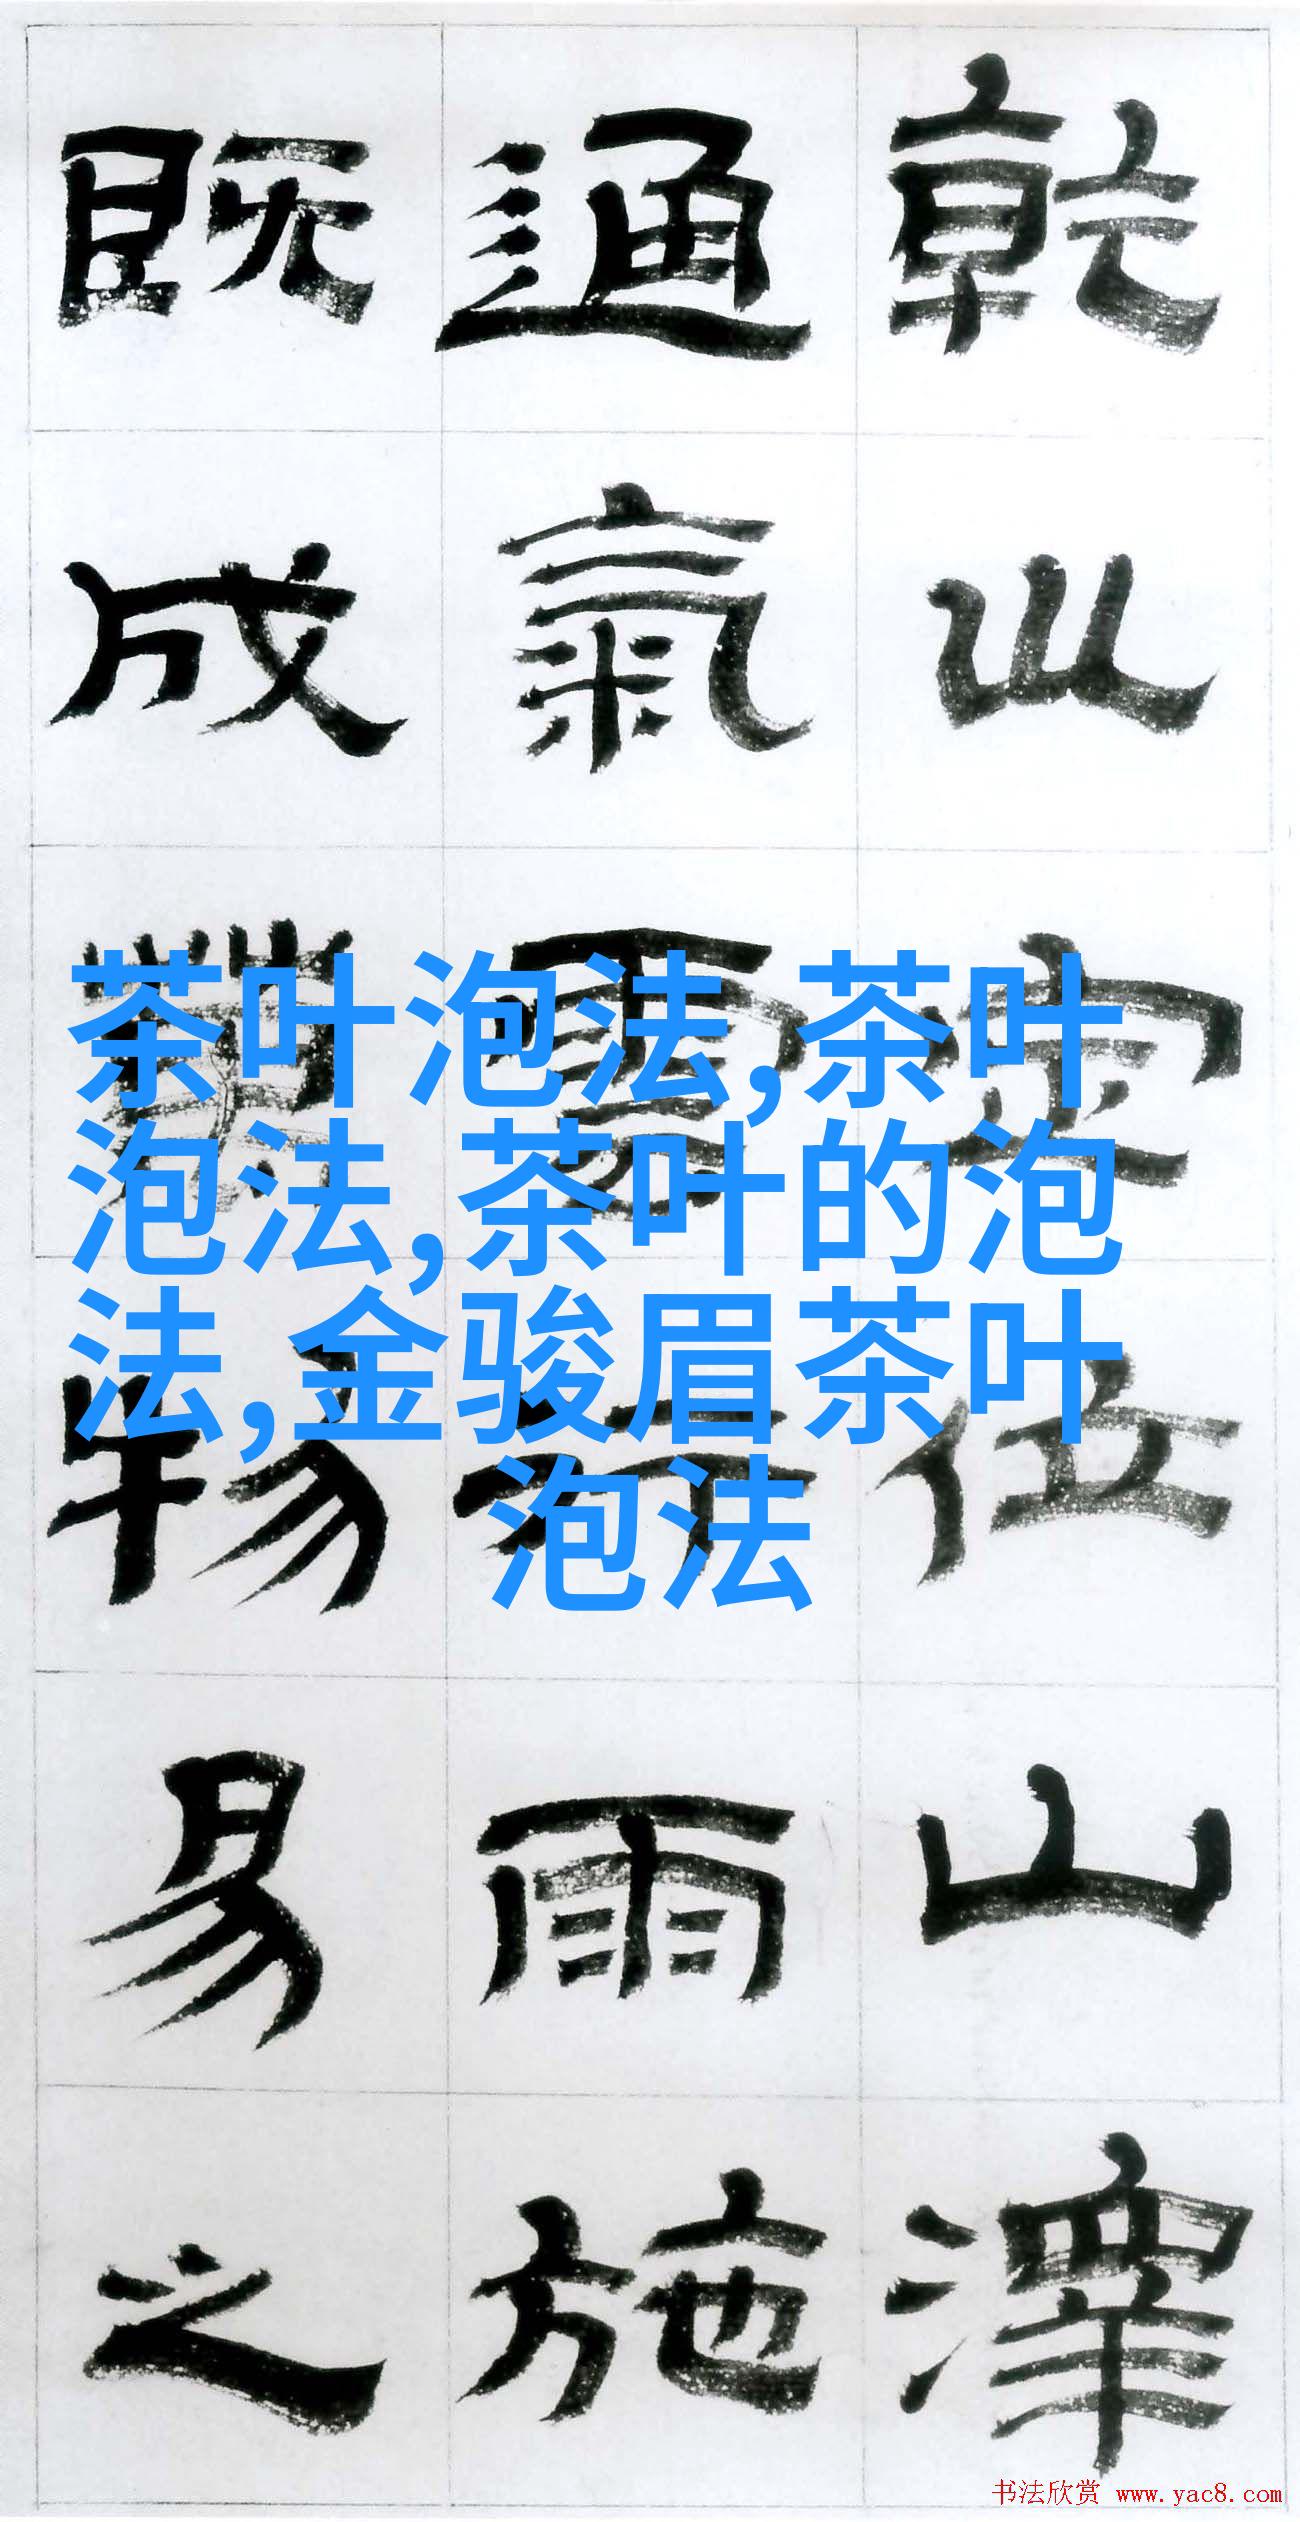 乾坤定位山澤
通氣雲行雨施
既成萬物易之
茶叶泡法,茶叶
泡法,茶叶的泡
法,金骏眉茶叶
泡法
书法欣赏 www.yac8.com